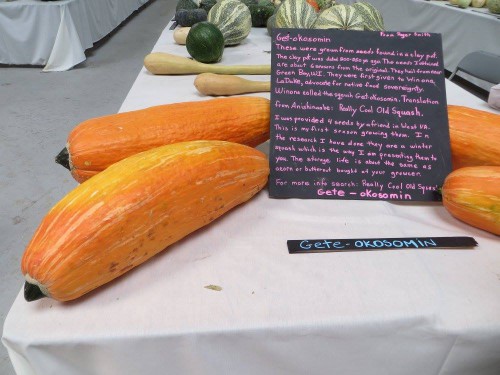 From Roger Smith
Get-okosomin
These were grown from seeds found in a clay pot.
The clay pot was dated 800-850 yr ago. The seeds I obtained
are about 6 censors from the original. They hail from near
Green Bay, WI. They were first given to Winona
LaDuke, advocate for native food sovereignty.
Winona called the squash Gete okosomin. Translation
from Anishinaabe: Really Cool Old Squash.
I was provided 4 seeds by a friend in West VA.
This is my first season growing them. In
the research I have done they are a winter
squash which is the way I am presenting them to
you. The storage life is about the same as
acorn or butternut bought at your grower.
For more info search: Really Cool Old Squash
Gete - okosomin
Gete-OKOSOMIN